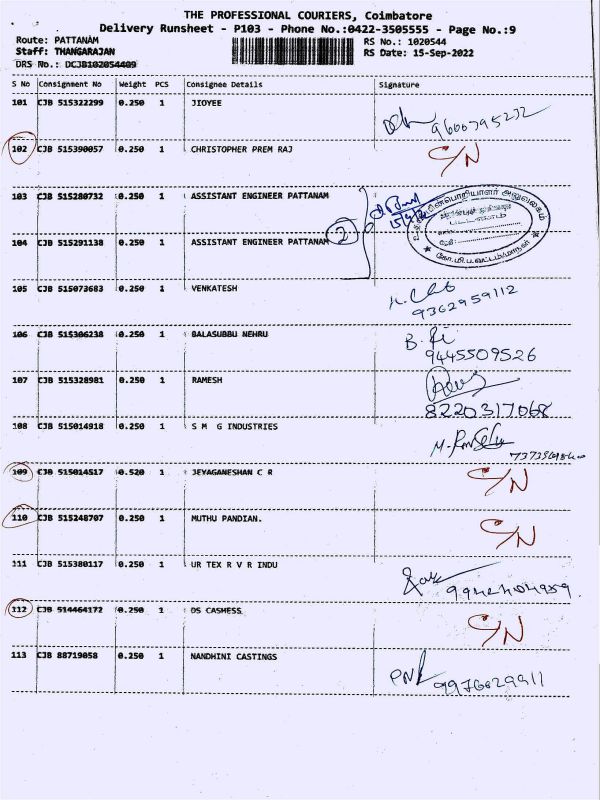 THE PROFESSIONAL COURIERS, Coimbatore
Delivery Runsheet - P103 - Phone No.:0422-3505555 - Page No.:9
Route: PATTANAM
RS No.: 1020544
Staff: THANGARAJAN
RS Date: 15-Sep-2022
DRS No.: DCJB102054409
S No Consignment No Weight PCS Consignee Details Signature
101 CJB 515322299 0.250 1 JIOYEE
9600795232
102 CJB 515390057 0.250 1 CHRISTOPHER PREM RAJ C/N
103 CJB 515280732 0.250 1 ASSISTANT ENGINEER PATTANAM
2
104 CJB 515291138 0.250 1 ASSISTANT ENGINEER PATTANAM
105 CJB 515073683 0.250 1 VENKATESH
9362959112
106 CJB 515306238 0.250 1 BALASUBBU NEHRU
9445509526
107 CJB 515328981 0.250 1 RAMESH
8220317068
108 CJB 515014918 0.250 1 S M G INDUSTRIES
109 CJB 515014517 0.520 1 JEYAGANESHAN C R C/N
110 CJB 515248707 0.250 1 MUTHU PANDIAN. C/N
111 CJB 515380117 0.250 1 UR TEX R V R INDU
112 CJB 514464172 0.250 1 DS CASHESS C/N
113 CJB 88719058 0.250 1 NANDHINI CASTINGS
9976029911